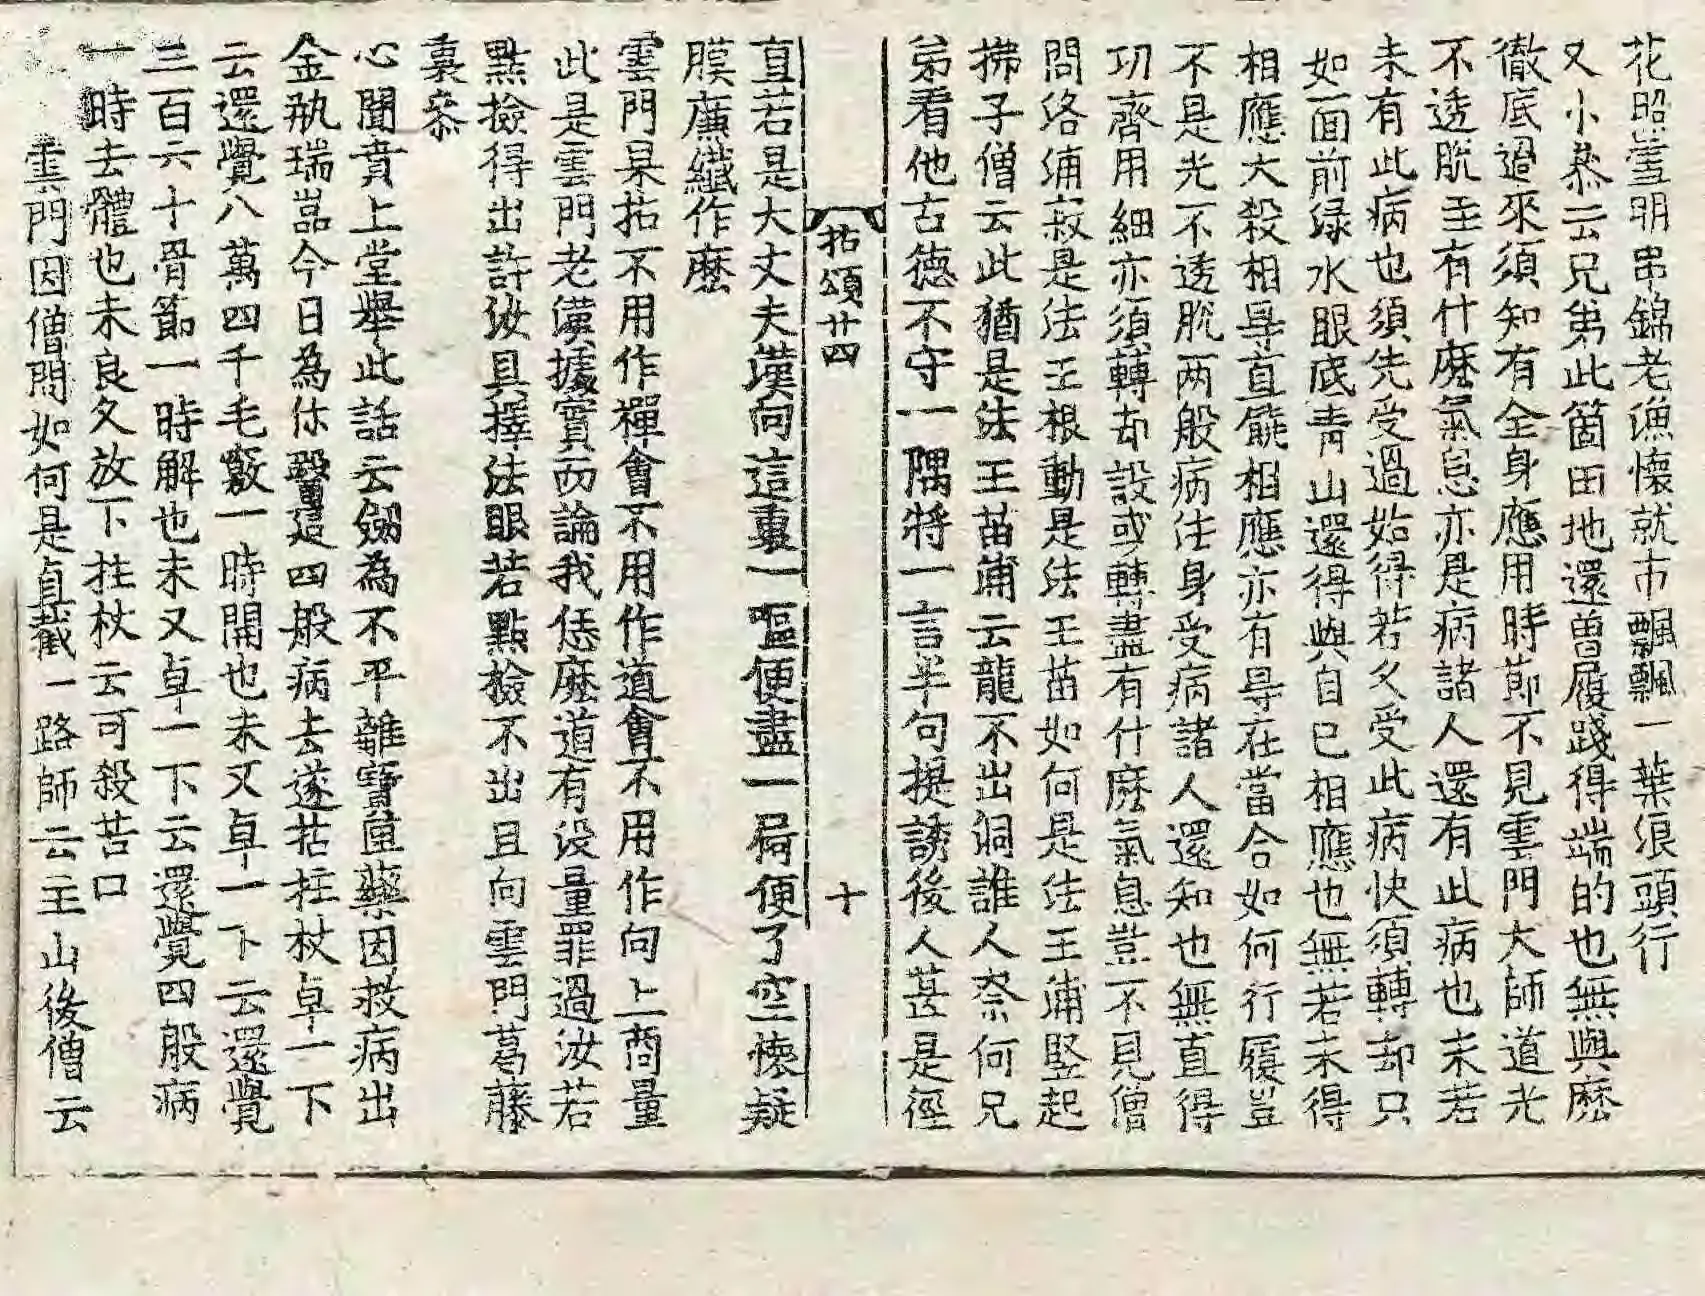 花照雪明串錦老漁懷就市飄飄一葉浪頭行
又小叅云兄弟此箇田地還曽履踐得端的也無與麽
徹底過來須知有全身應用時節不見雲門大師道光
不透脫至有什麽氣息亦是病諸人還有此病也未若
未有此病也須先受過始得若久受此病快須轉却只
如面前緑水眼底青山還得與自己相應也無若未得
相應大殺相㝵直饒相應亦有㝵在當合如何行履豈
不是光不透脫兩般病法身受病諸人還知也無直得
功齊用細亦須轉却設或轉盡有什麽氣息豈不見僧
問洛浦寂是法王根動是法王苗如何是法王浦竪起
拂子僧云此猶是法王苗浦云龍不出洞誰人奈何兄
弟看他古德不守一隅將一言半句提誘後人甚是徑
拈頌廿四 十
直若是大丈夫漢向這裏一嘔便盡一局便了空懷疑
膜廉纖作麽
雲門杲拈不用作禪會不用作道會不用作向上商量
此是雲門老漢據實而論我恁麽道有没量罪過汝若
點檢得出許汝具擇法眼若點檢不出且向雲門葛藤
裏叅
心聞賁上堂舉此話云劒為不平離寶匣藥因救病出
金瓶瑞嵓今日為你醫這四般病去遂拈拄杖卓一下
云還覺八萬四千毛竅一時開也未又卓一下云還覺
三百六十骨節一時解也未又卓一下云還覺四般病
一時去體也未良久放下拄杖云可殺苦口
雲門因僧問如何是直截一路師云主山後僧云